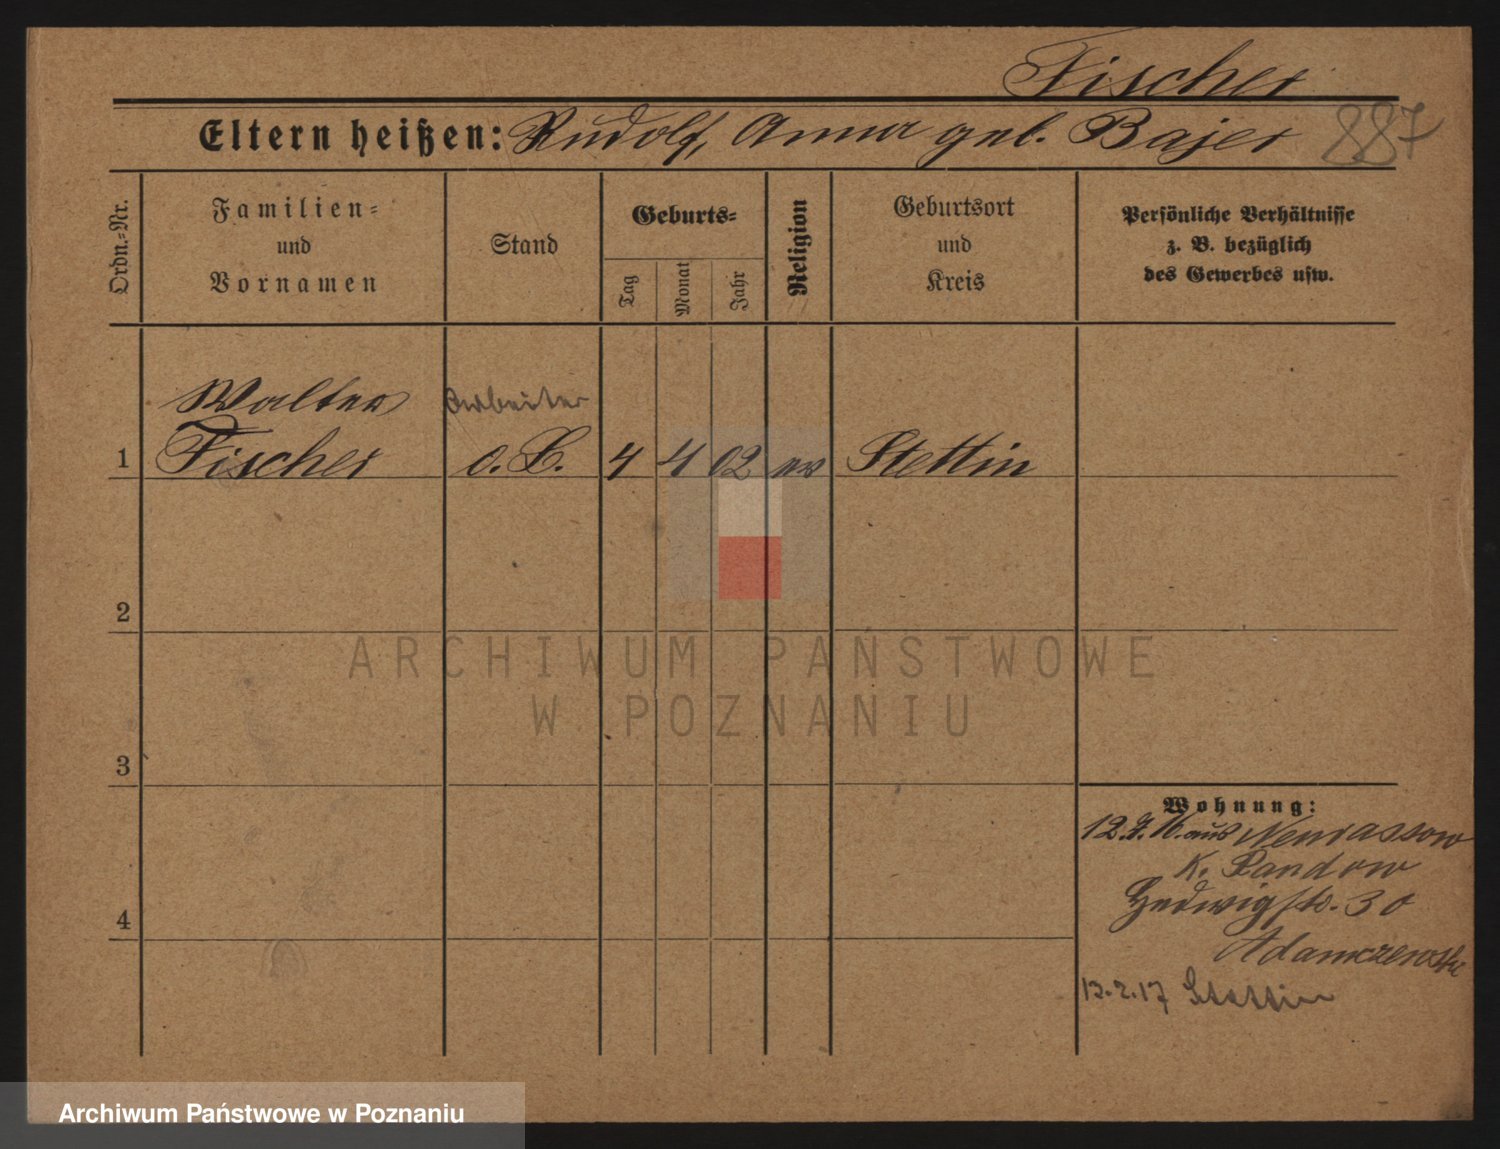 Fischer
Eltern heißen: Rudolf, Anna geb. Bajer 887
Ordn.-Nr.
Familien-
und
Vornamen
Stand
Geburts-
Tag
Monat
Jahr
Religion
Geburtsort
und
Kreis
Persönliche Verhältnisse
z. B. bezüglich
des Gewerbes usw.
Walter Arbeiter
1 Fischer o. B. 4 4 02 ev Stettin
2
ARCHIWUM PAŃSTWOWE
W POZNANIU
3
Wohnung:
12.7.16. aus Neurassow
K. Randow
4
Hedwigstr. 30
Adamczewski
13.2.17 Stettin
Archiwum Państwowe w Poznaniu